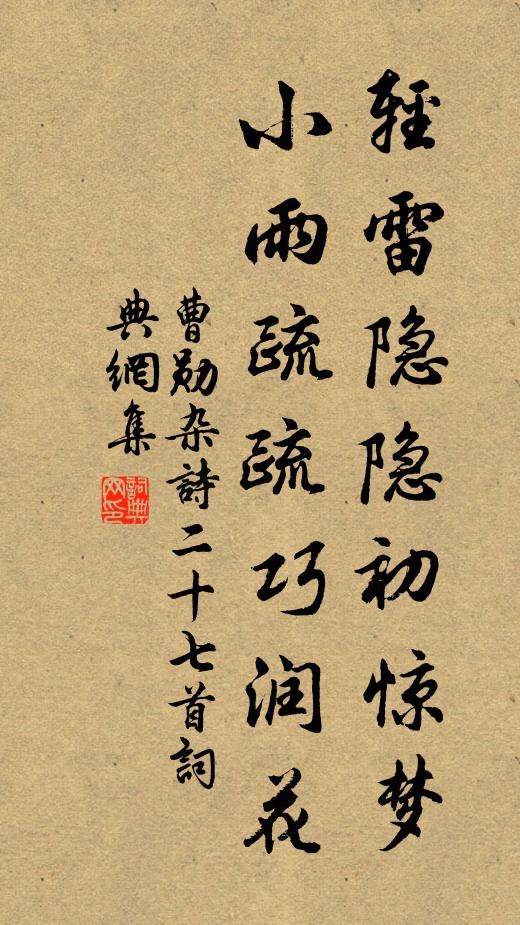 輕雷隐隐初惊梦
小雨疏疏巧润花
曹勋杂詩二十七首詞
典網集
詞典网印